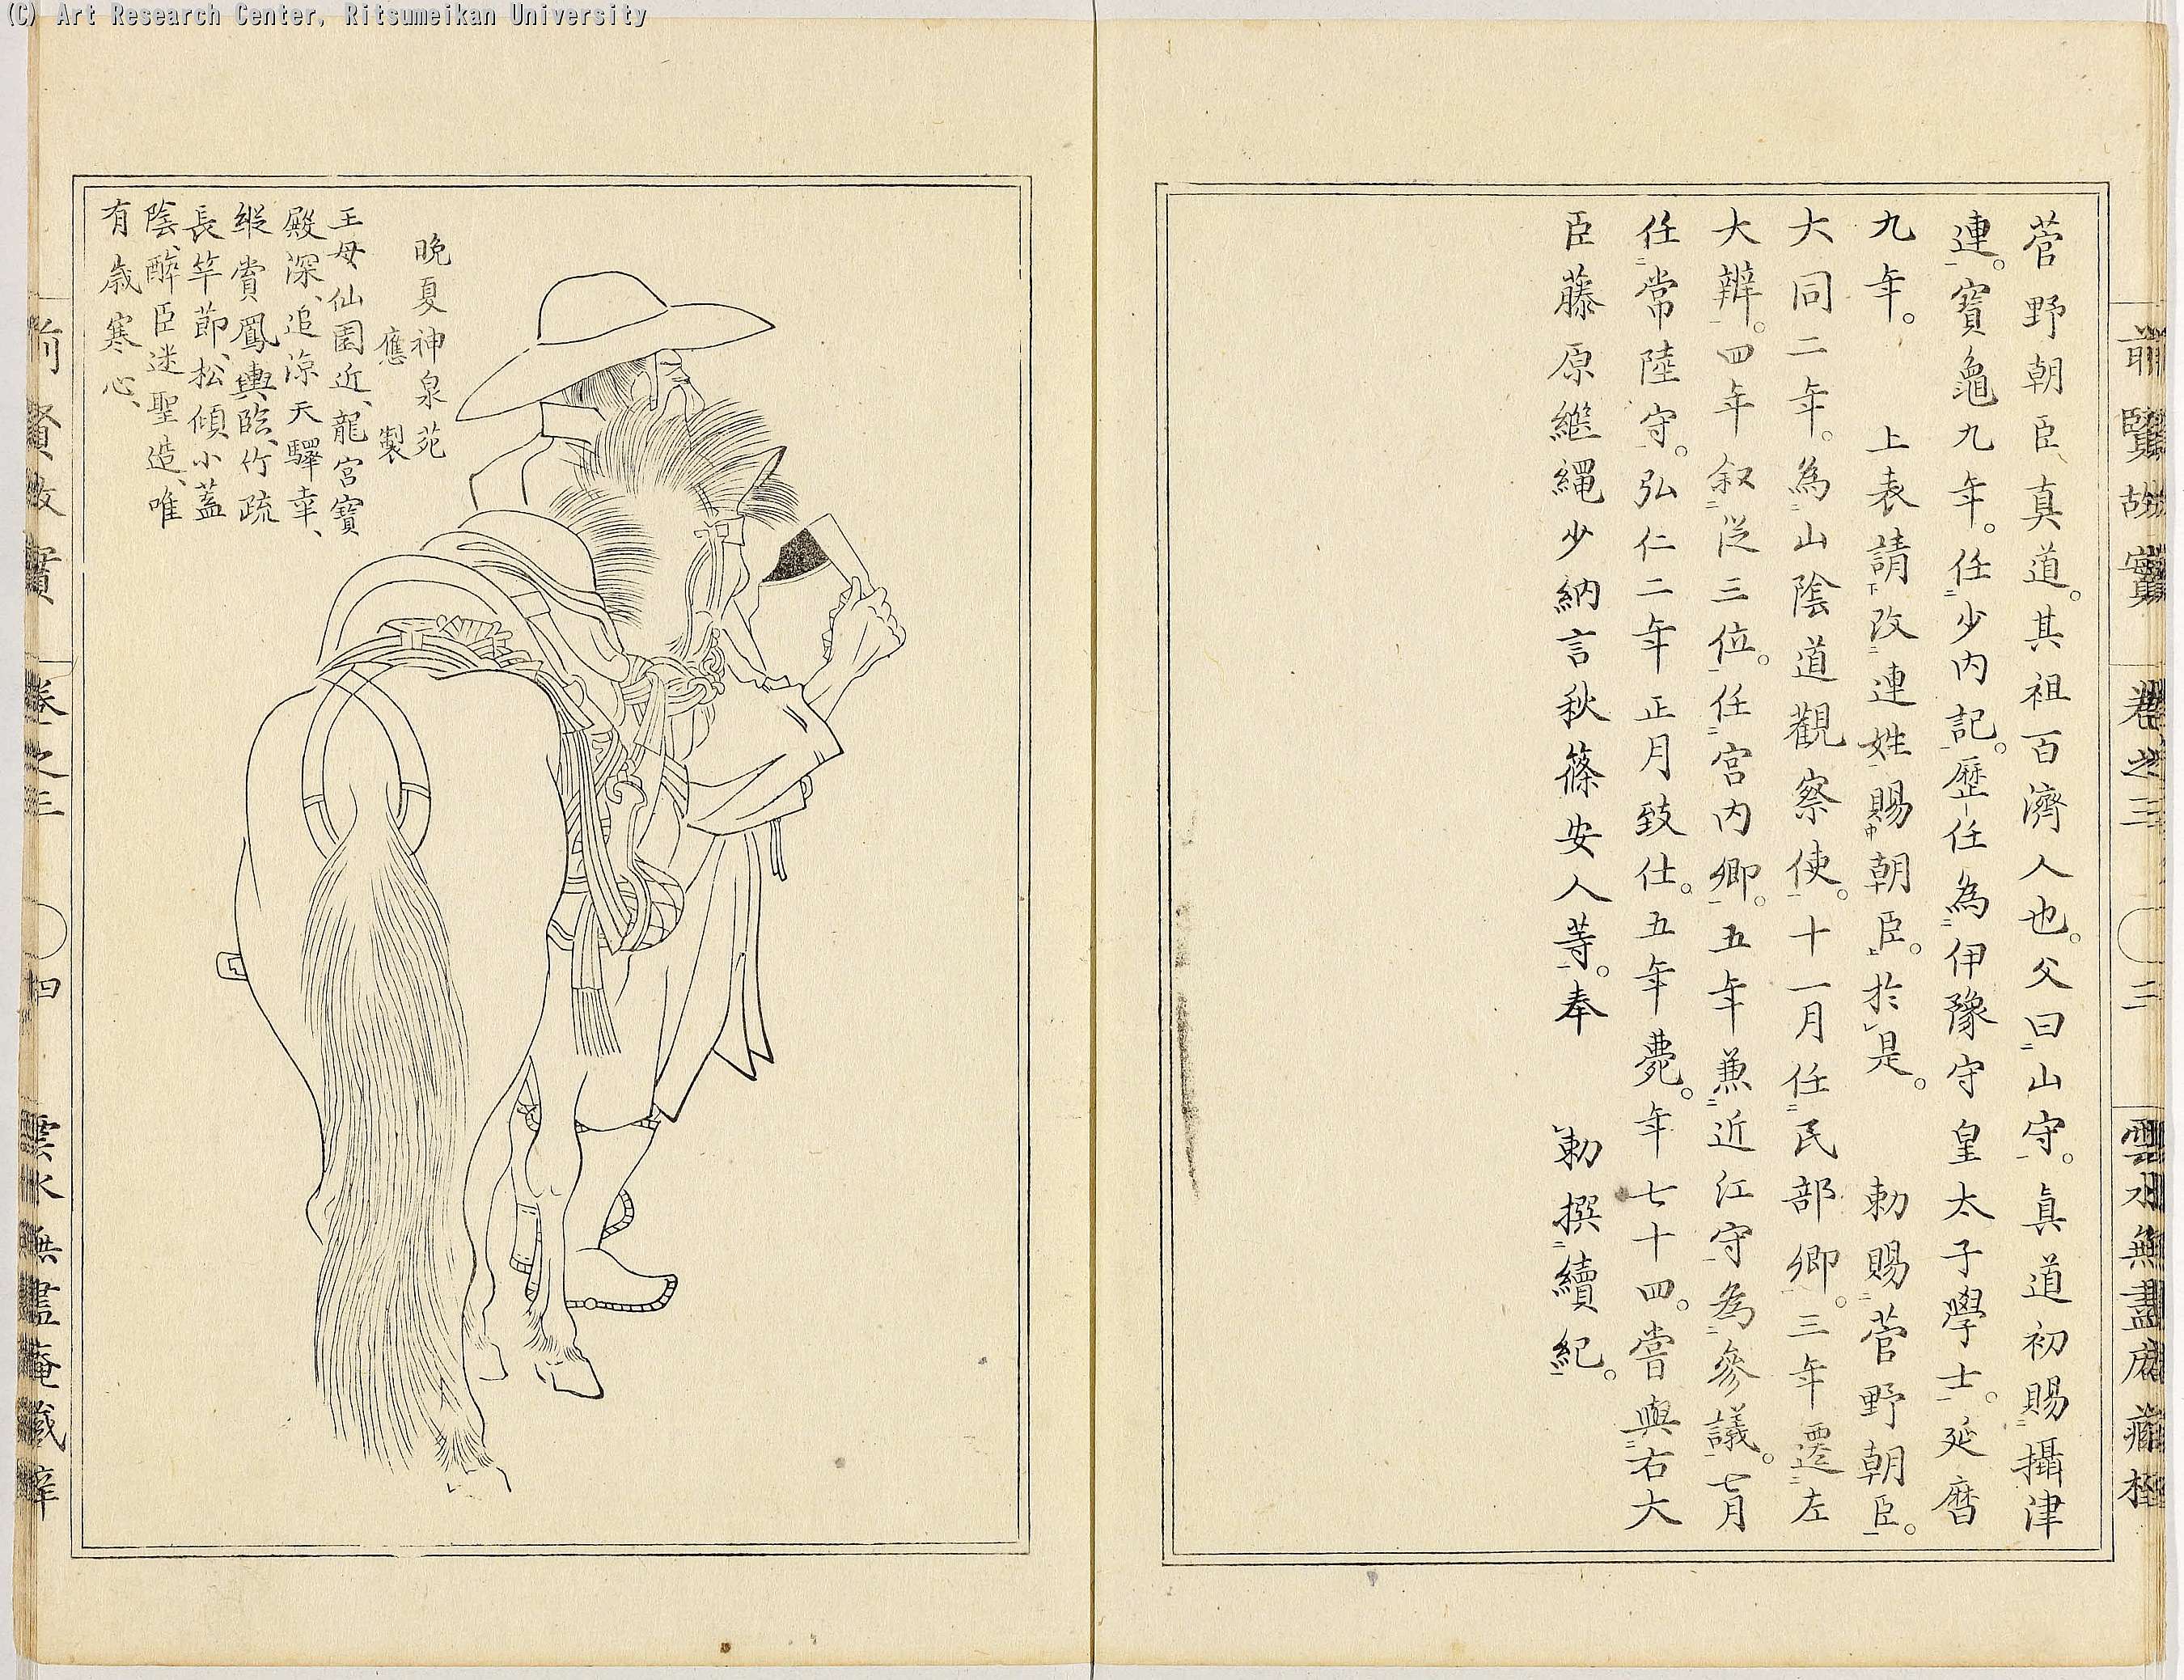 (C) Art Research Center, Ritsumeikan University
前賢故實 卷之三 三 雲水無盡庵藏梓
菅野朝臣真道。其祖百濟人也。父曰山守。真道初賜攝津
連。寶龜九年。任少内記。歷任為伊豫守皇太子學士。延曆
九年。 上表請改連姓賜朝臣。於是。 勅賜菅野朝臣。
大同二年。為山陰道觀察使。十一月任民部卿。三年遷左
大辨。四年叙從三位。任宮内卿。五年兼近江守為參議。七月
任常陸守。弘仁二年正月致仕。五年薨。年七十四。嘗與右大
臣藤原繼繩少納言秋篠安人等。奉 勅撰續紀。
晚夏神泉苑
應 製
王母仙園近、龍宮寶
殿深、追涼天驛幸、
縱賞鳳輿臨、竹疏
長竿節、松傾小蓋
陰、醉臣迷聖造、唯
有歲寒心、
前賢故實 卷之三 四 雲水無盡庵藏梓